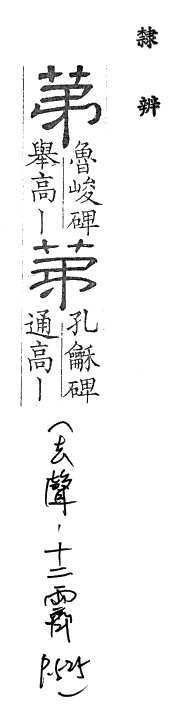 隸辨
苐
魯峻碑
舉高丨
苐
孔龢碑
通高丨
(去聲、十二霽 P.525)